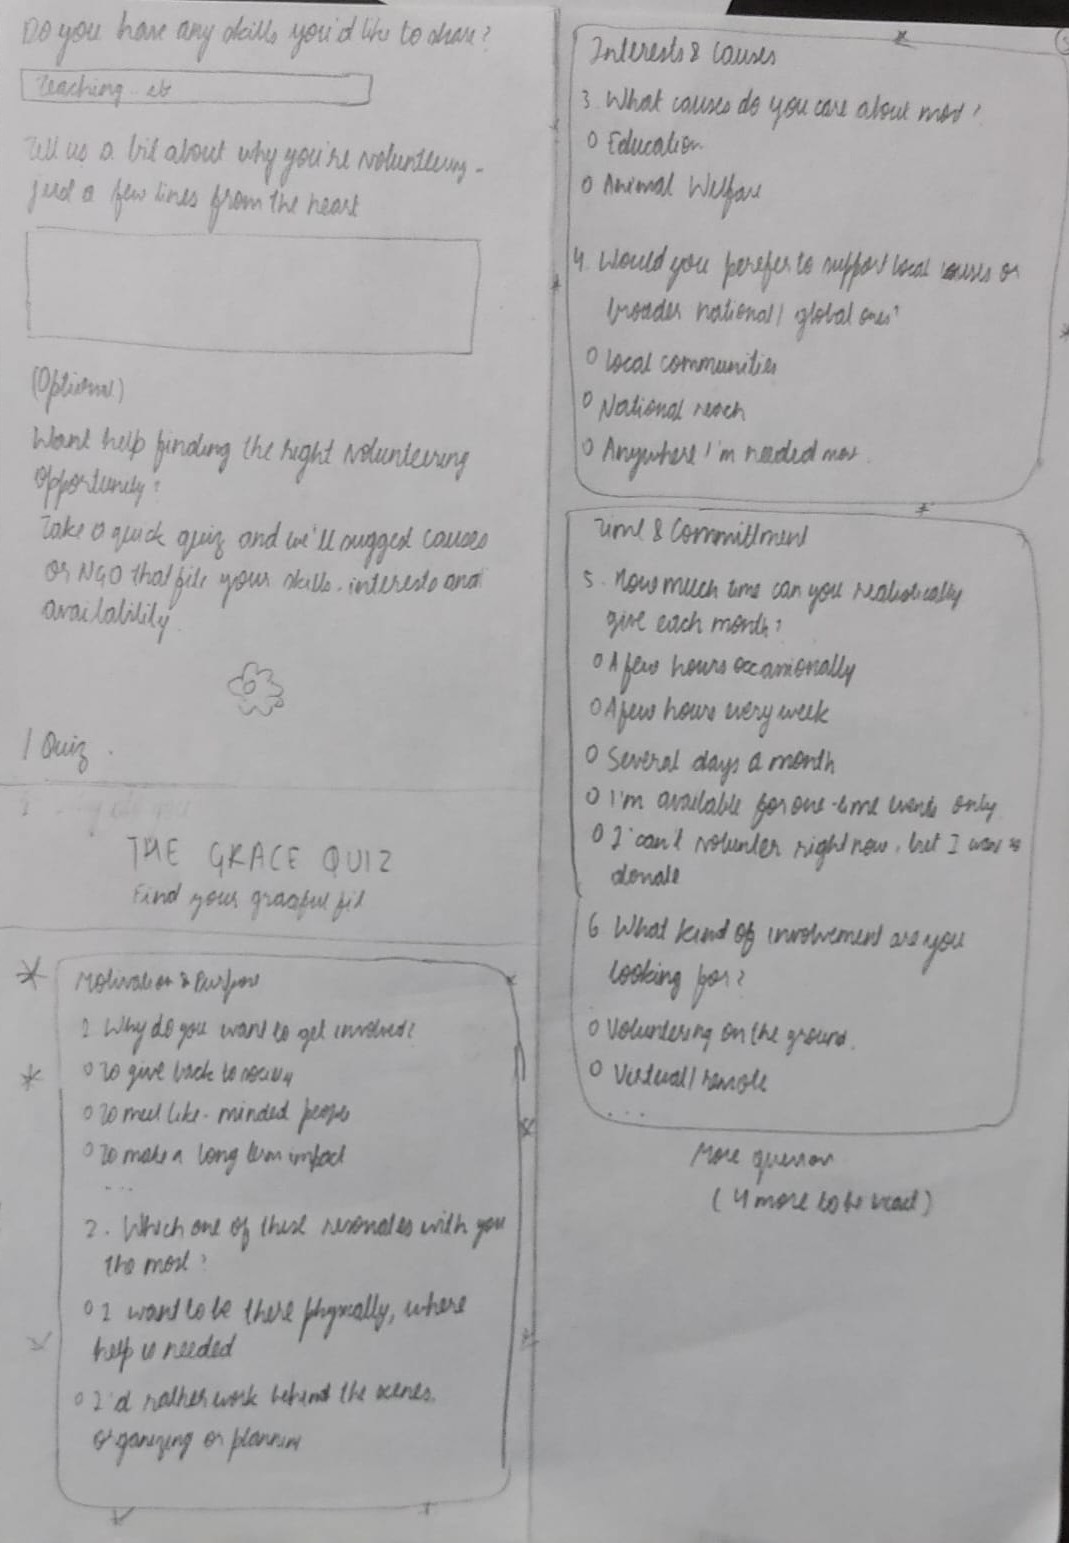 Do you have any skills you'd like to share?
Teaching.. etc
Tell us a bit about why you're volunteering -
just a few lines from the heart
(Optional)
Want help finding the right volunteering
opportunity?
Take a quick quiz and we'll suggest causes
or NGO that fits your skills, interests and
availability.
1 Quiz.
THE GRACE QUIZ
Find your graceful fit
Motivation & Purpose
1 Why do you want to get involved?
O To give back to society
O To meet like-minded people
O To make a long term impact
...
2. Which one of these resonates with you
the most?
O I want to be there physically, where
help is needed
O I'd rather work behind the scenes,
organizing or planning
Interests & Causes
3. What causes do you care about most?
O Education
O Animal Welfare
4. Would you perefer to support local causes or
broader national/ global ones?
O Local communities
O National reach
O Anywhere I'm needed most.
Time & Committment
5. How much time can you realistically
give each month?
O A few hours occasionally
O A few hours every week
O Several days a month
O I'm available for one-time events only
O I can't volunter right now, but I want to
donate
6 What kind of involvement are you
looking for?
O Voluntering on the ground.
O Virtual/ remote
...
More
(4 more to be)